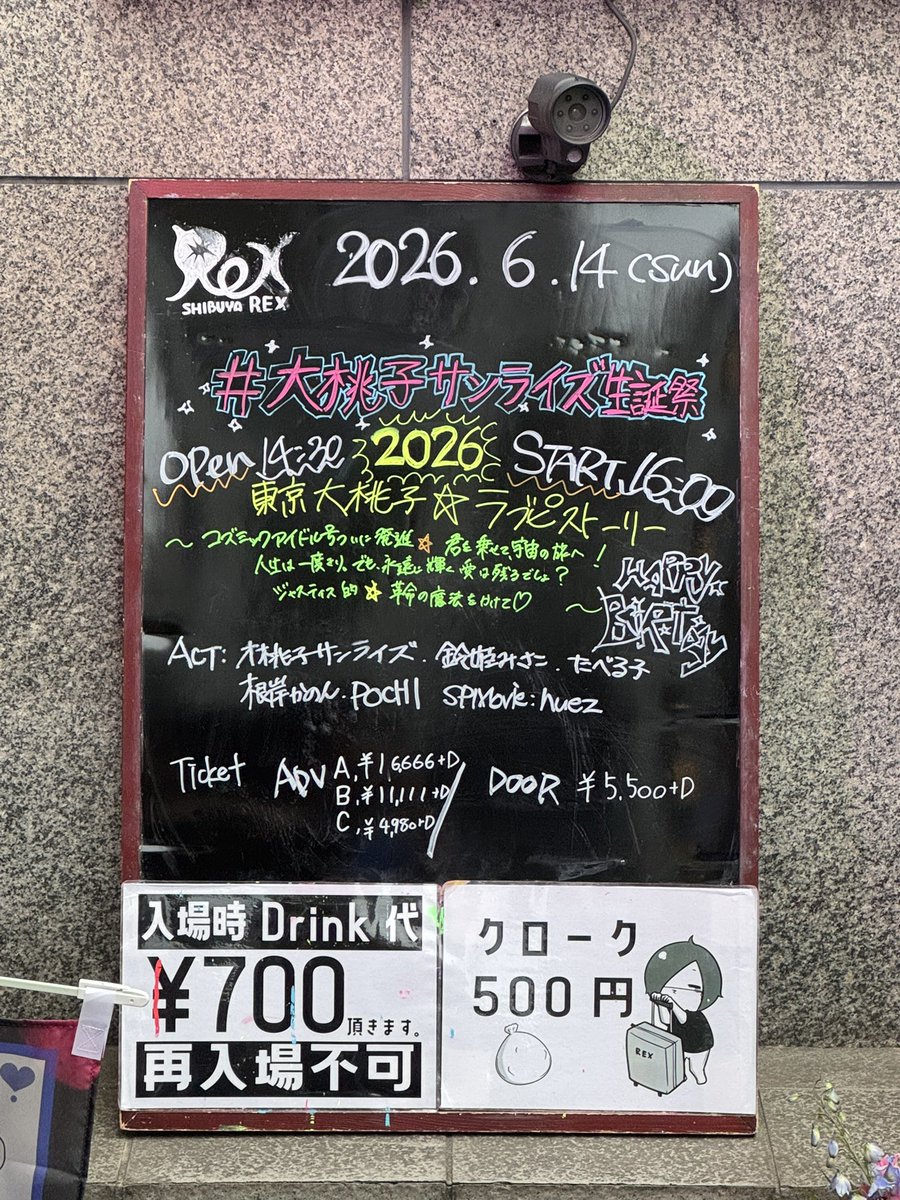 Rex
SHIBUYA REX
2026.6.14(sun)
#大桃子サンライズ生誕祭
2026
OPen 14:30
START 16:00
東京大桃子☆ラブピストーリー
〜コズミックアイドル号ついに発進☆君を乗せて宇宙の旅へ!
人生は一度きり、でも永遠に輝く愛は残るでしょ?
ジャスティス的☆革命の魔法をかけて♡〜
HAPPY
BIRTDay
ACT: 大桃子サンライズ.鈴姫みさこ.たべる子
根岸かめん.POCHI SPMovie:huez
Ticket ADV A,¥16,666+D
B,¥11,111+D
C,¥4,980+D
DOOR ¥5,500+D
入場時 Drink 代
¥700頂きます。
再入場不可
クローク
500円
REX